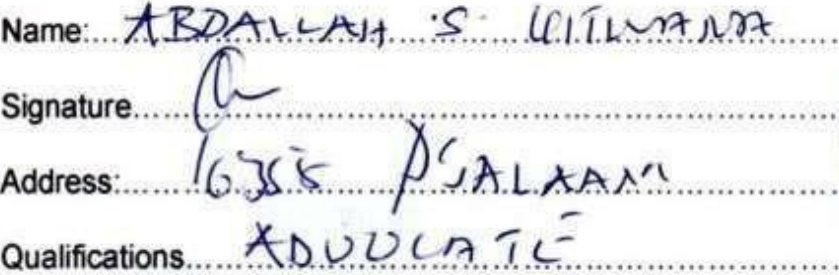 Name: ABDALLAH S.
Signature
Address: D'SALAAM
Qualifications ADVOCATE